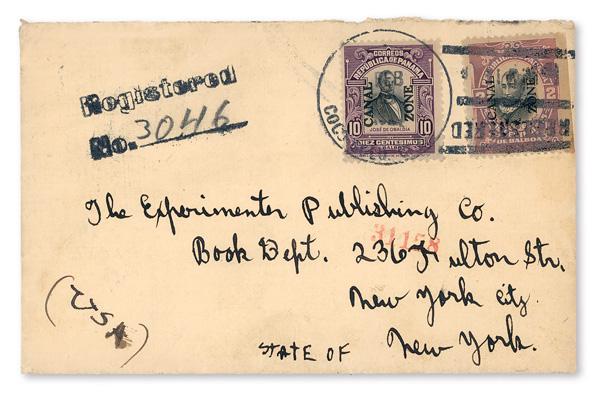 Registered
No. 3046
CORREOS
REPÚBLICA DE PANAMA
CANAL ZONE
10 10
JOSE DE OBALDIA
DIEZ CENTESIMOS
CANAL ZONE
2
DE BALBOA
FEB
The Experimenter Publishing Co.
Book Dept. 236 Fulton Str.
31158
New York City.
(USA)
STATE OF New York.